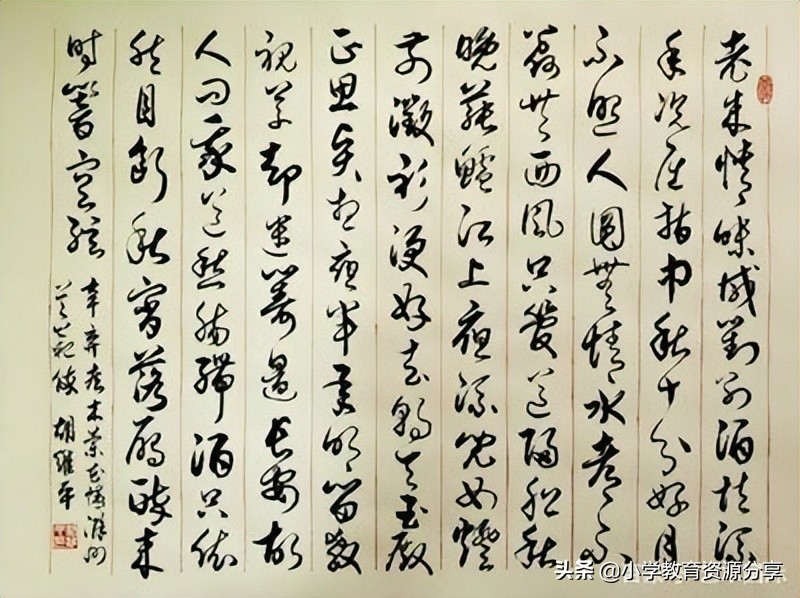 老来情味减對别酒怯流
年况屈指中秋十分好月
不照人圆無情水都不
管共西風只管送归船秋
晚莼鱸江上夜深儿女燈
前征衫便好去朝天玉殿
正思贤想夜半承明留教
視草却遣筹邊长安故
人问我道愁肠殢酒只依
然目断秋霄落雁醉来
时響空弦
辛弃疾木蘭花慢滁州
送范倅 胡維平
头条 @小学教育资源分享